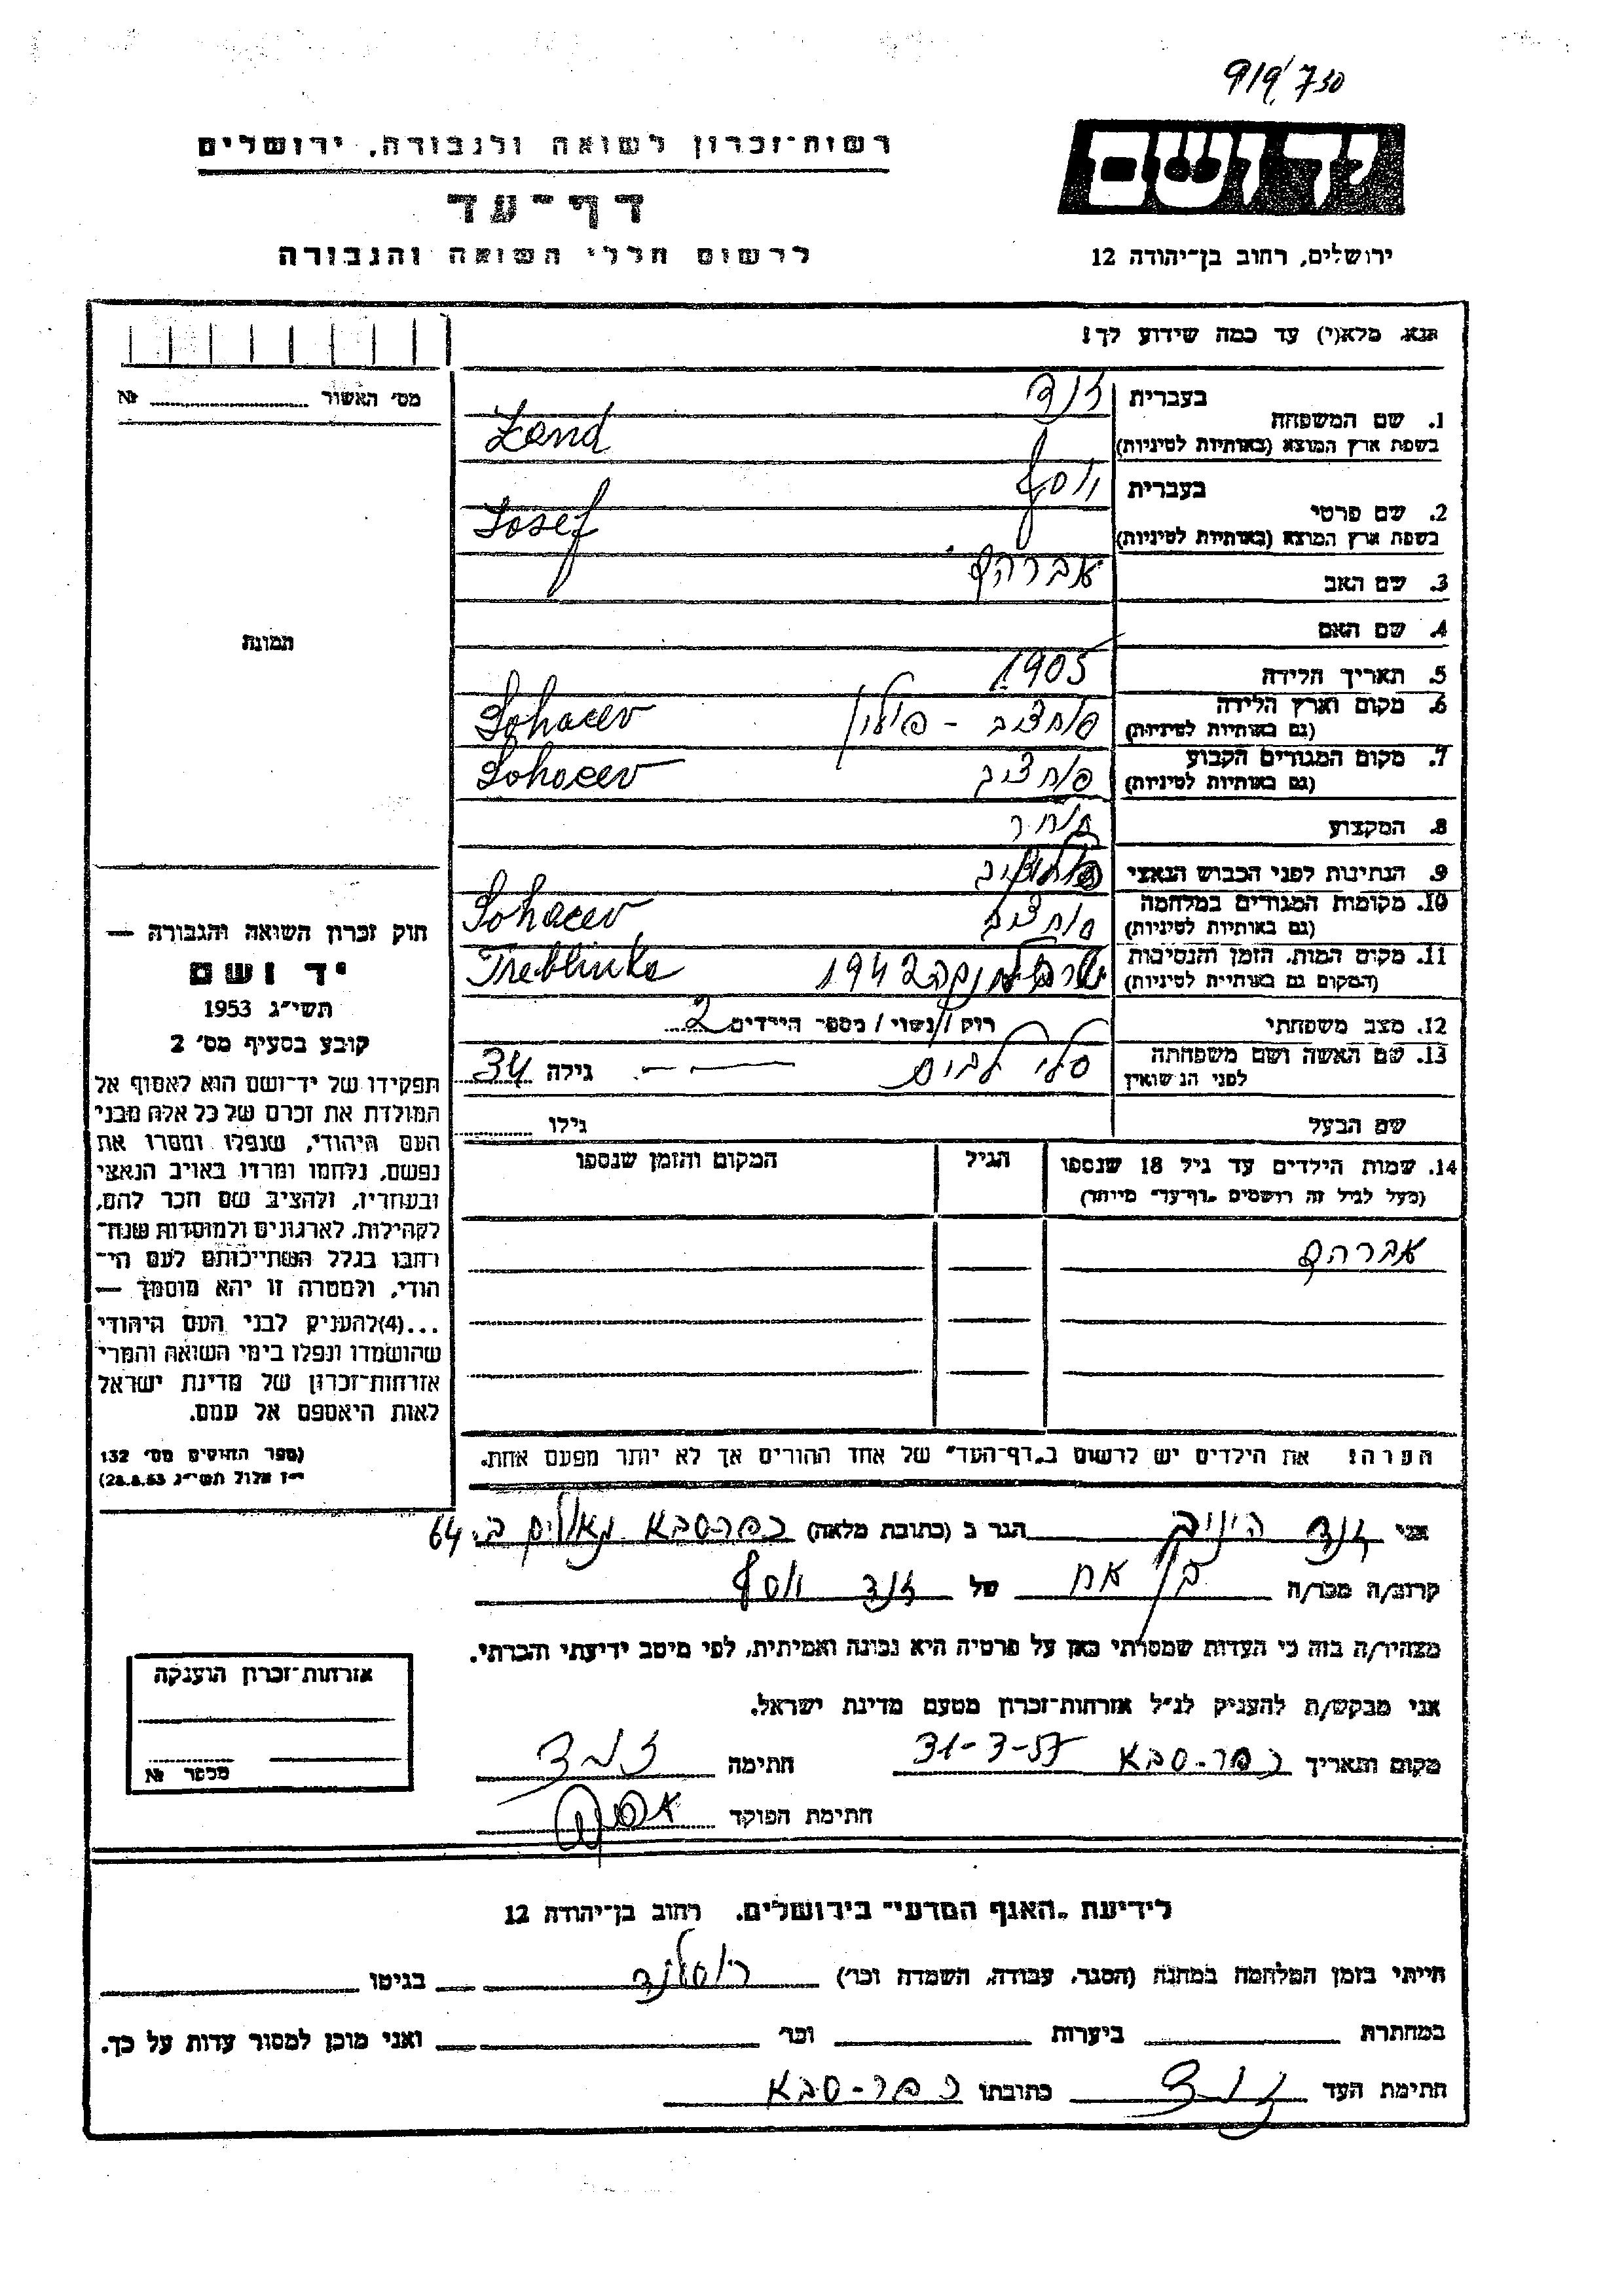 919/730
רשות-זכרון לשואה ולגבורה, ירושלים
יד ושם
דף-עד
לרשום חללי השואה והגבורה
ירושלים, רחוב בן-יהודה 12
נא מלא(י) עד כמה שידוע לך!
מס' האשור № 
1. שם המשפחה
בעברית זנד
בשפת ארץ המוצא (באותיות לטיניות) Zand
2. שם פרטי
בעברית יוסף
בשפת ארץ המוצא (באותיות לטיניות) Josef
3. שם האב אברהם
4. שם האם
5. תאריך הלידה 1905
6. מקום וארץ הלידה
(גם באותיות לטיניות) סוחצוב - פולין Sohacev
7. מקום המגורים הקבוע
(גם באותיות לטיניות) סוחצוב Sohacev
8. המקצוע סוחר
9. הנתינות לפני הכבוש הנאצי
10. מקומות המגורים במלחמה
(גם באותיות לטיניות) סוחצוב Sohacev
11. מקום המות, הזמן והנסיבות
(המקום גם באותיות לטיניות) טרבלינקה 1942 Treblinka
12. מצב משפחתי רוק / נשוי / מספר הילדים 2
13. שם האשה ושם משפחתה
לפני הנשואין גילה 34
שם הבעל גילו
14. שמות הילדים עד גיל 18 שנספו
(מעל לגיל זה רושמים "דף-עד" מיוחד)
הגיל
המקום והזמן שנספו
אברהם
הערה: את הילדים יש לרשום ב"דף-העד" של אחד ההורים אך לא יותר מפעם אחת.
תמונה
חוק זכרון השואה והגבורה —
יד ושם
תשי"ג 1953
קובע בסעיף מס' 2
תפקידו של יד-ושם הוא לאסוף אל
המולדת את זכרם של כל אלה מבני
העם היהודי, שנפלו ומסרו את
נפשם, נלחמו ומרדו באויב הנאצי
ובעוזריו, ולהציב שם וזכר להם,
לקהילות, לארגונים ולמוסדות שנח-
רבו בגלל השתייכותם לעם הי-
הודי, ולמטרה זו יהא מוסמך —
...(4) להעניק לבני העם היהודי
שהושמדו ונפלו בימי השואה והמרי
אזרחות-זכרון של מדינת ישראל
לאות היאספם אל עמם.
(ספר החוקים מס' 132
י"ז אלול תשי"ג 28.8.53)
אני זנד הגר ב (כתובת מלאה) כפר-סבא 64
קרוב/ה מכר/ה בן אח של זנד יוסף
מצהיר/ה בזה כי העדות שמסרתי כאן על פרטיה היא נכונה ואמיתית, לפי מיטב ידיעתי והכרתי.
אני מבקש/ת להעניק לנ"ל אזרחות-זכרון מטעם מדינת ישראל.
מקום ותאריך כפר-סבא 31-3-57 חתימה זנד
חתימת הפוקד
אזרחות-זכרון הוענקה
מספר №
לידיעת "האגף המדעי" בירושלים, רחוב בן-יהודה 12
הייתי בזמן המלחמה במחנה (הסגר, עבודה, השמדה וכו') רוסלנד בגיטו
במחתרת ביערות וכו' ואני מוכן למסור עדות על כך.
חתימת העד זנד כתובתו כפר-סבא